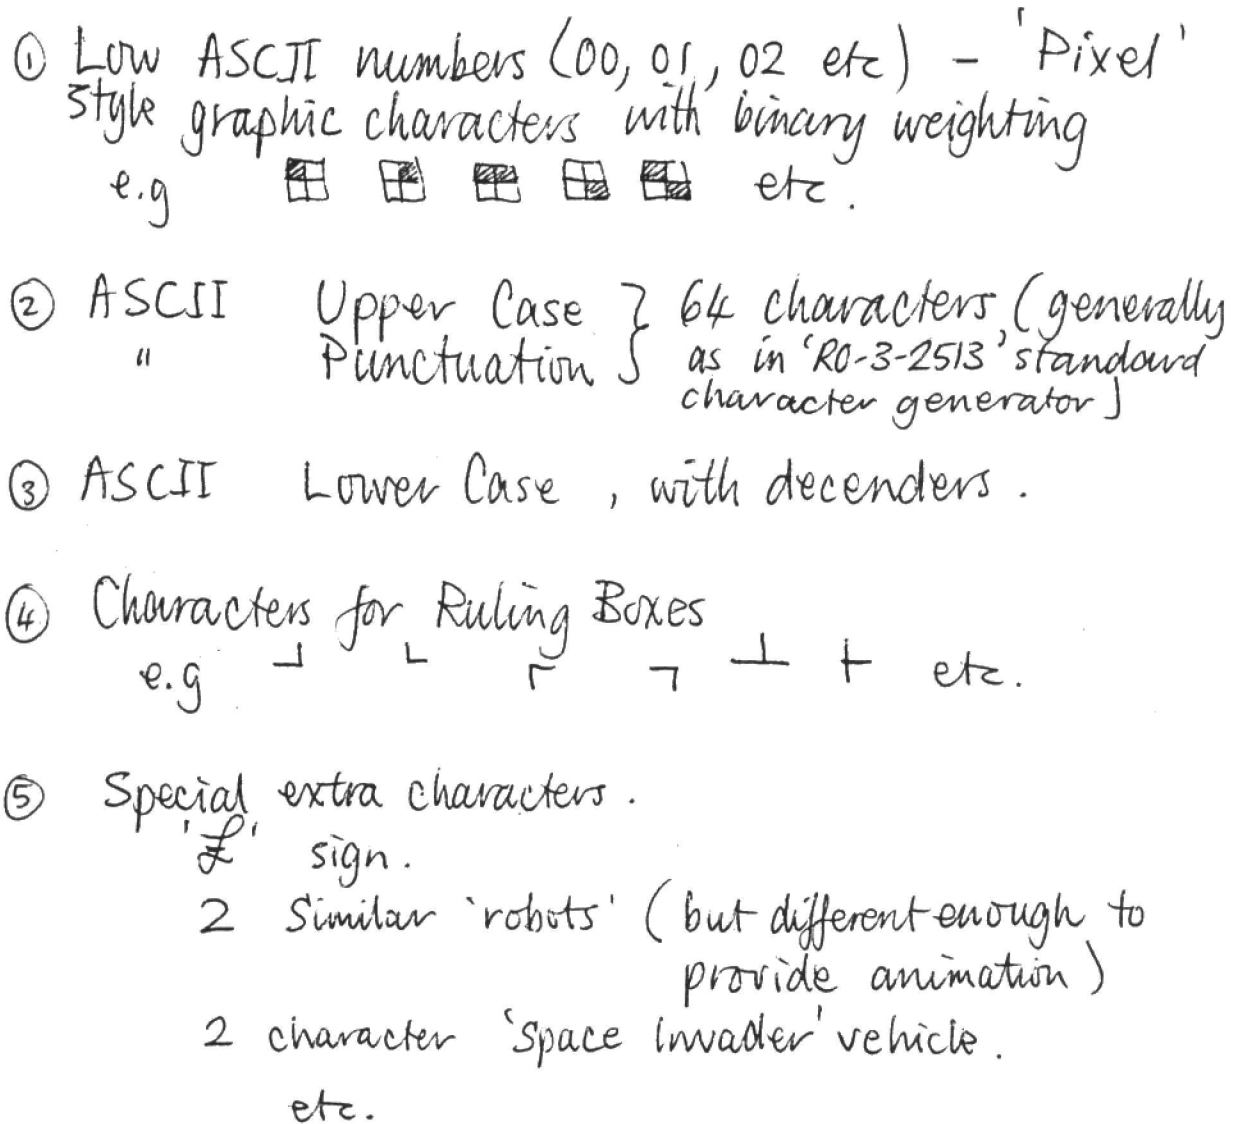 ① Low ASCII numbers (00, 01, 02 etc) - 'Pixel'
style graphic characters with binary weighting
e.g etc.
② ASCII Upper Case } 64 characters (generally
" Punctuation } as in 'RO-3-2513' standard
character generator)
③ ASCII Lower Case, with decenders.
④ Characters for Ruling Boxes
e.g ┘ └ ┌ ┐ ┴ ├ etc.
⑤ Special extra characters.
'£' sign.
2 Similar 'robots' (but different enough to
provide animation)
2 character 'Space Invader' vehicle.
etc.